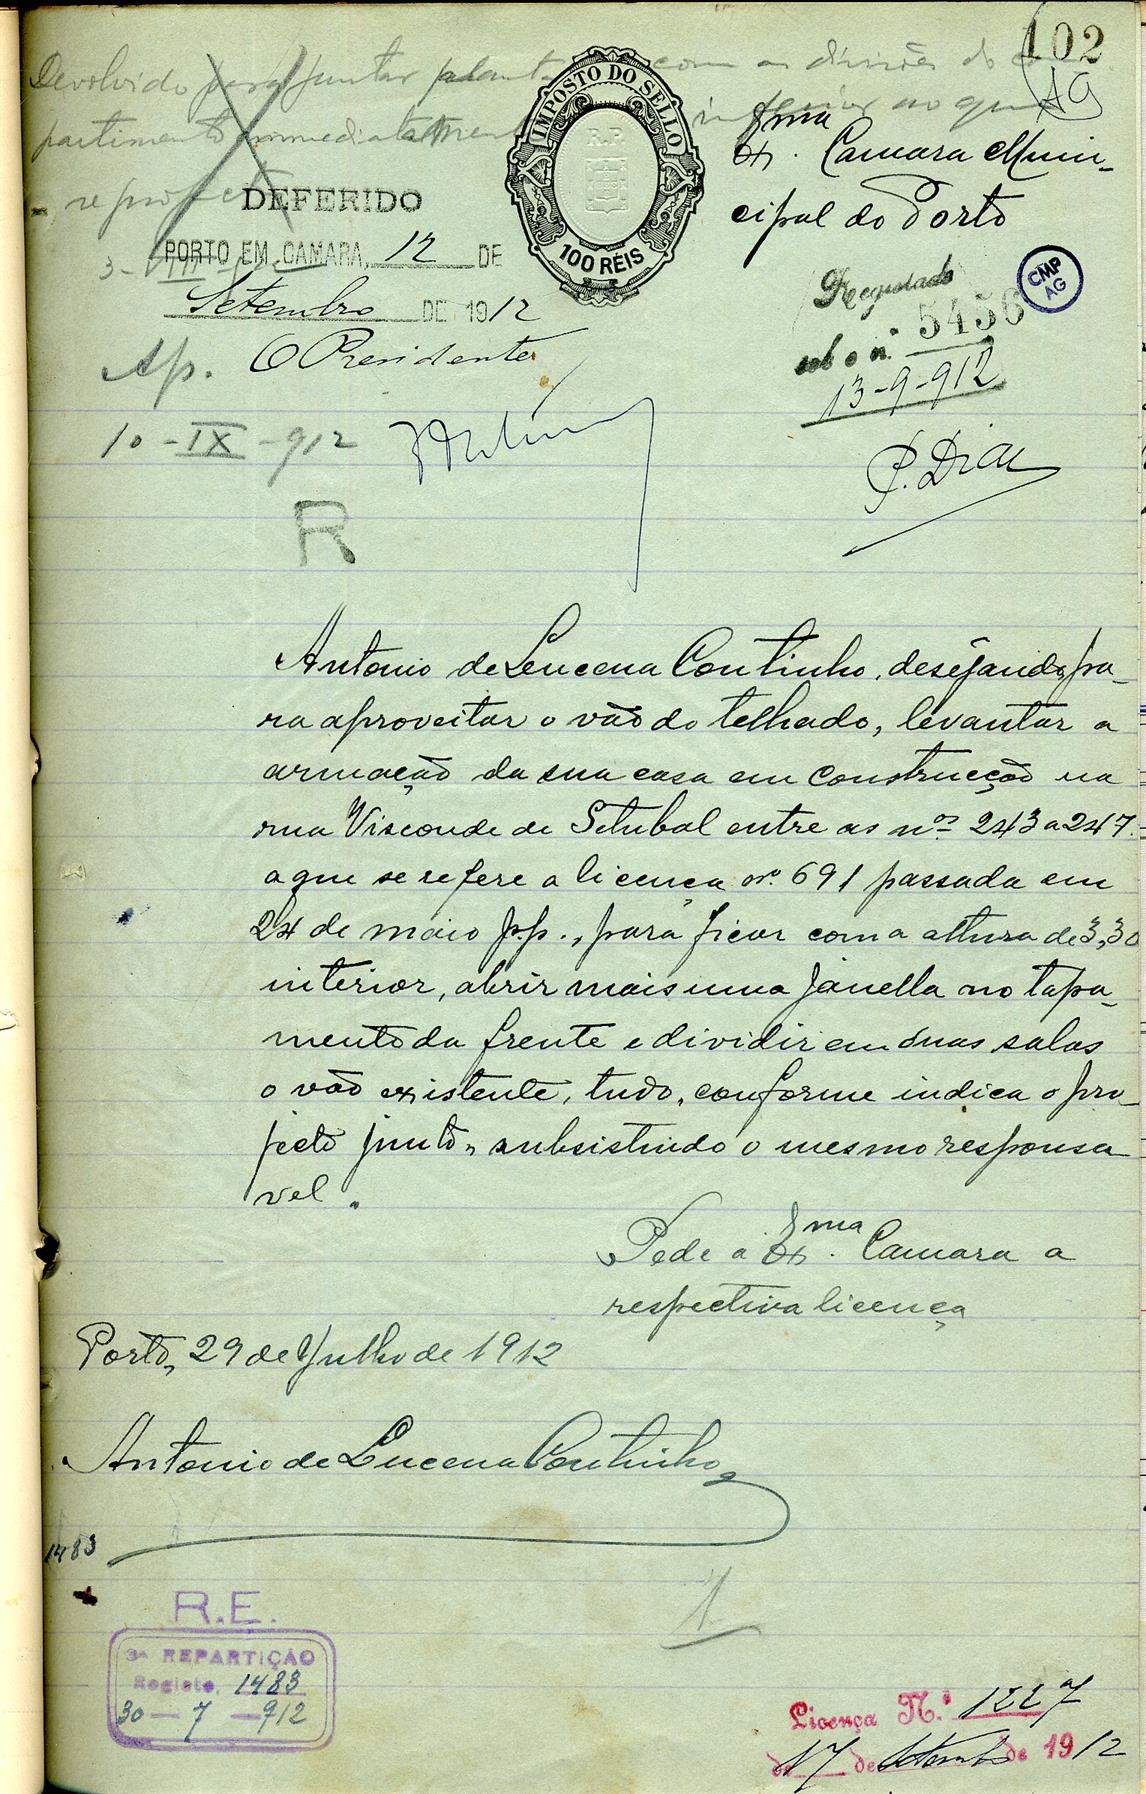 102
AG
Devolvido para juntar planta com a divisão do
partimento immediatamente inferior ao que
reprojecta
3-VIII-
IMPOSTO DO SELLO
R.P.
100 RÉIS
Exma. Camara Muni-
cipal do Porto
DEFERIDO
PORTO EM CAMARA, 12 DE
Setembro DE 1912
O Presidente
Ap.
10-IX-912
R
CMP
AG
Registado
sob o n.º 5456
13-9-912
P. Dias
Antonio de Lucena Coutinho, desejando, pa-
ra aproveitar o vão do telhado, levantar a
armação da sua casa em construcção na
rua Visconde de Setubal entre os nos. 243 a 247.
a que se refere a licença nº. 691 passada em
24 de maio p.p., para ficar com a altura de 3,30
interior, abrir mais uma janella no tapa-
mento da frente e dividir em duas salas
o vão existente, tudo, conforme indica o pro-
jecto junto, subsistindo o mesmo responsa-
vel.
Pede a Exma. Camara a
respectiva licença
Porto, 29 de Julho de 1912
Antonio de Lucena Coutinho
1483
R.E.
3ª REPARTIÇÃO
Registo, 1483
30-7-912
1
Licença N.º 1227
de 17 de Setembro de 1912